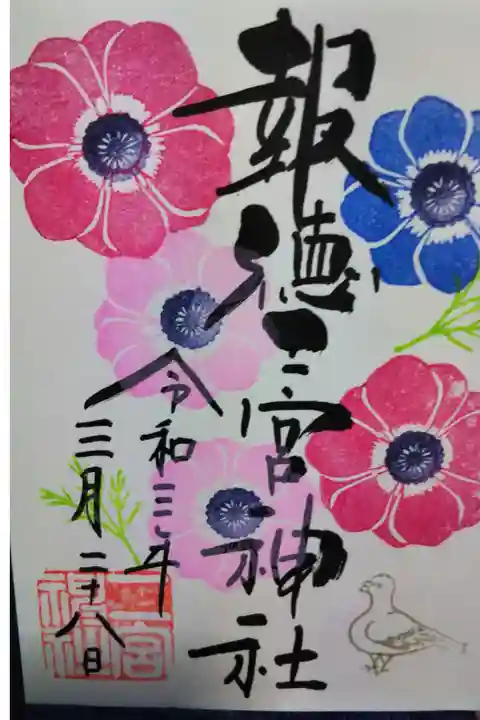 報徳二宮神社
令和三年
三月二十八日
二宮
神社